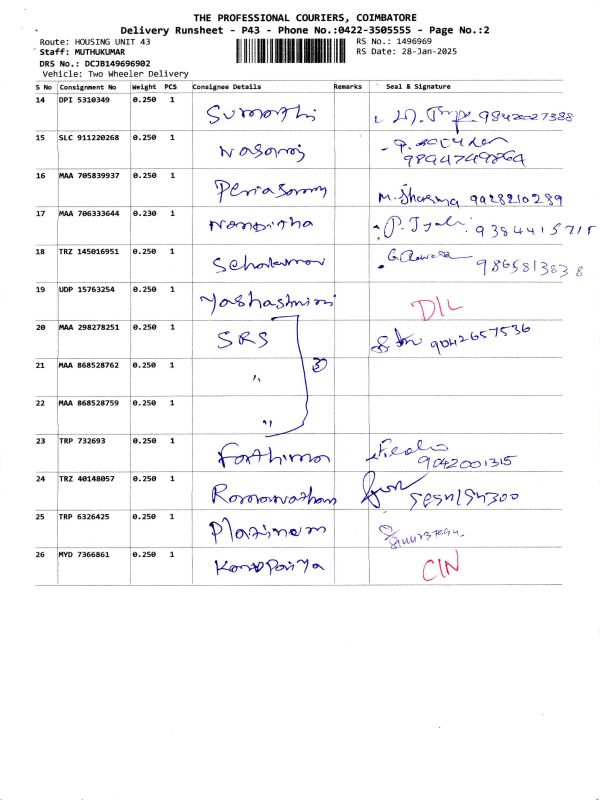 THE PROFESSIONAL COURIERS, COIMBATORE
Delivery Runsheet - P43 - Phone No.:0422-3505555 - Page No.:2
Route: HOUSING UNIT 43 RS No.: 1496969
Staff: MUTHUKUMAR RS Date: 28-Jan-2025
DRS No.: DCJB149696902
Vehicle: Two Wheeler Delivery
S No Consignment No Weight PCS Consignee Details Remarks Seal & Signature
14 DPI 5310349 0.250 1 Sumathi 9842027388
15 SLC 911220268 0.250 1 9894749864
16 MAA 705839937 0.250 1 Periasamy M. Sharma 9928210289
17 MAA 706333644 0.230 1 Nanditha P. 9384415715
18 TRZ 145016951 0.250 1 9865813838
19 UDP 15763254 0.250 1 Yashashwini DIL
20 MAA 298278251 0.250 1 SRS 9042657536
21 MAA 868528762 0.250 1 " 3
22 MAA 868528759 0.250 1 "
23 TRP 732693 0.250 1 Fathima 9042001315
24 TRZ 40148057 0.250 1
25 TRP 6326425 0.250 1 Platinum
26 MYD 7366861 0.250 1 CIN